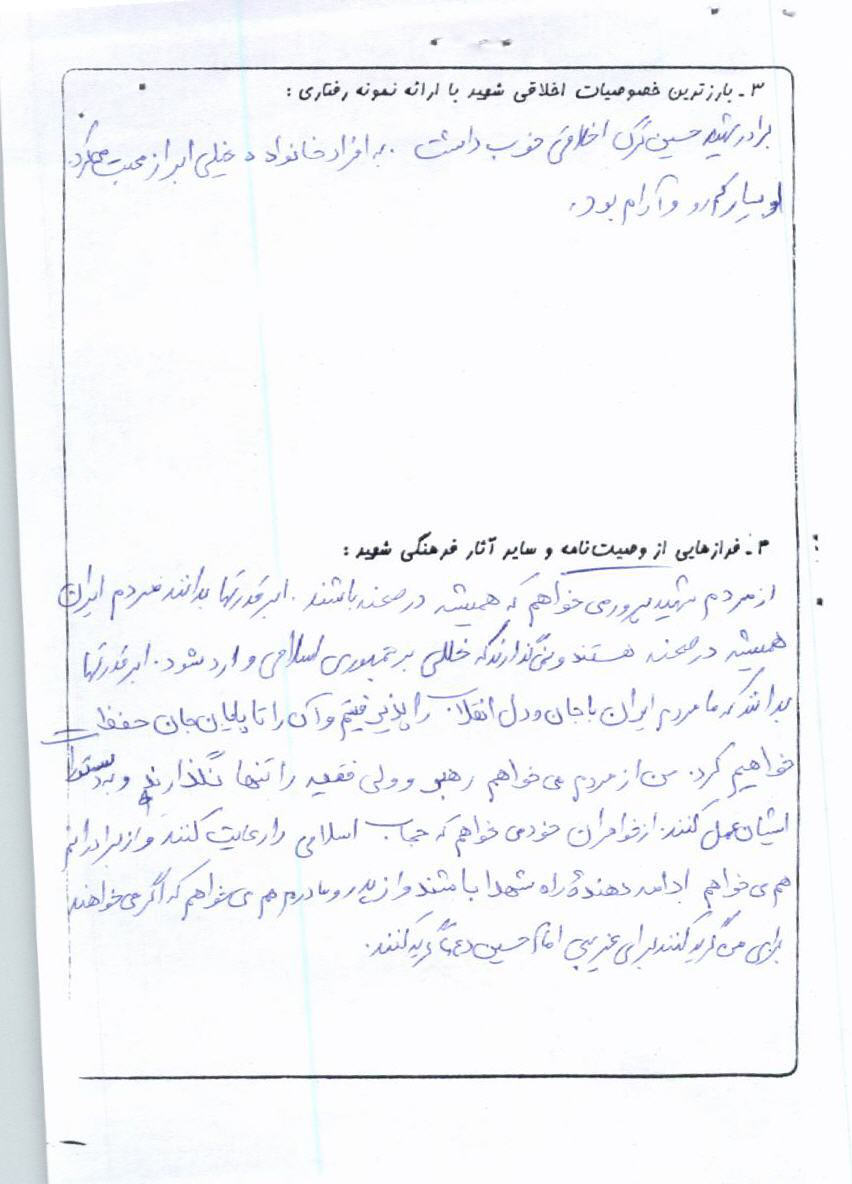 ۳ - بارزترین خصوصیات اخلاقی شهید با ارائه نمونه رفتاری :
برادر شهید حسین ترک اخلاقی خوب داشت . به افراد خانواده خیلی ابراز محبت میکرد.
او بسیار کم رو و آرام بود.
۴ - فرازهایی از وصیت‌نامه و سایر آثار فرهنگی شهید :
از مردم شهید پرور می خواهم که همیشه در صحنه باشند . ابر قدرتها بدانند مردم ایران
همیشه در صحنه هستند و نمی گذارند که خللی بر جمهوری اسلامی وارد شود . ابر قدرتها
بدانند که ما مردم ایران با جان و دل انقلاب را پذیرفتیم و آن را تا پایان جان حفظ
خواهیم کرد. من از مردم می خواهم رهبر و ولی فقیه را تنها نگذارند و به
ایشان عمل کنند . از خواهران خود می خواهم که حجاب اسلامی را رعایت کنند و از برادرانم
هم می خواهم ادامه دهندهٔ راه شهدا باشند و از پدر و مادرم هم می خواهم که اگر می خواهند
برای من گریه کنند برای غریبی امام حسین (ع) گریه کنند .